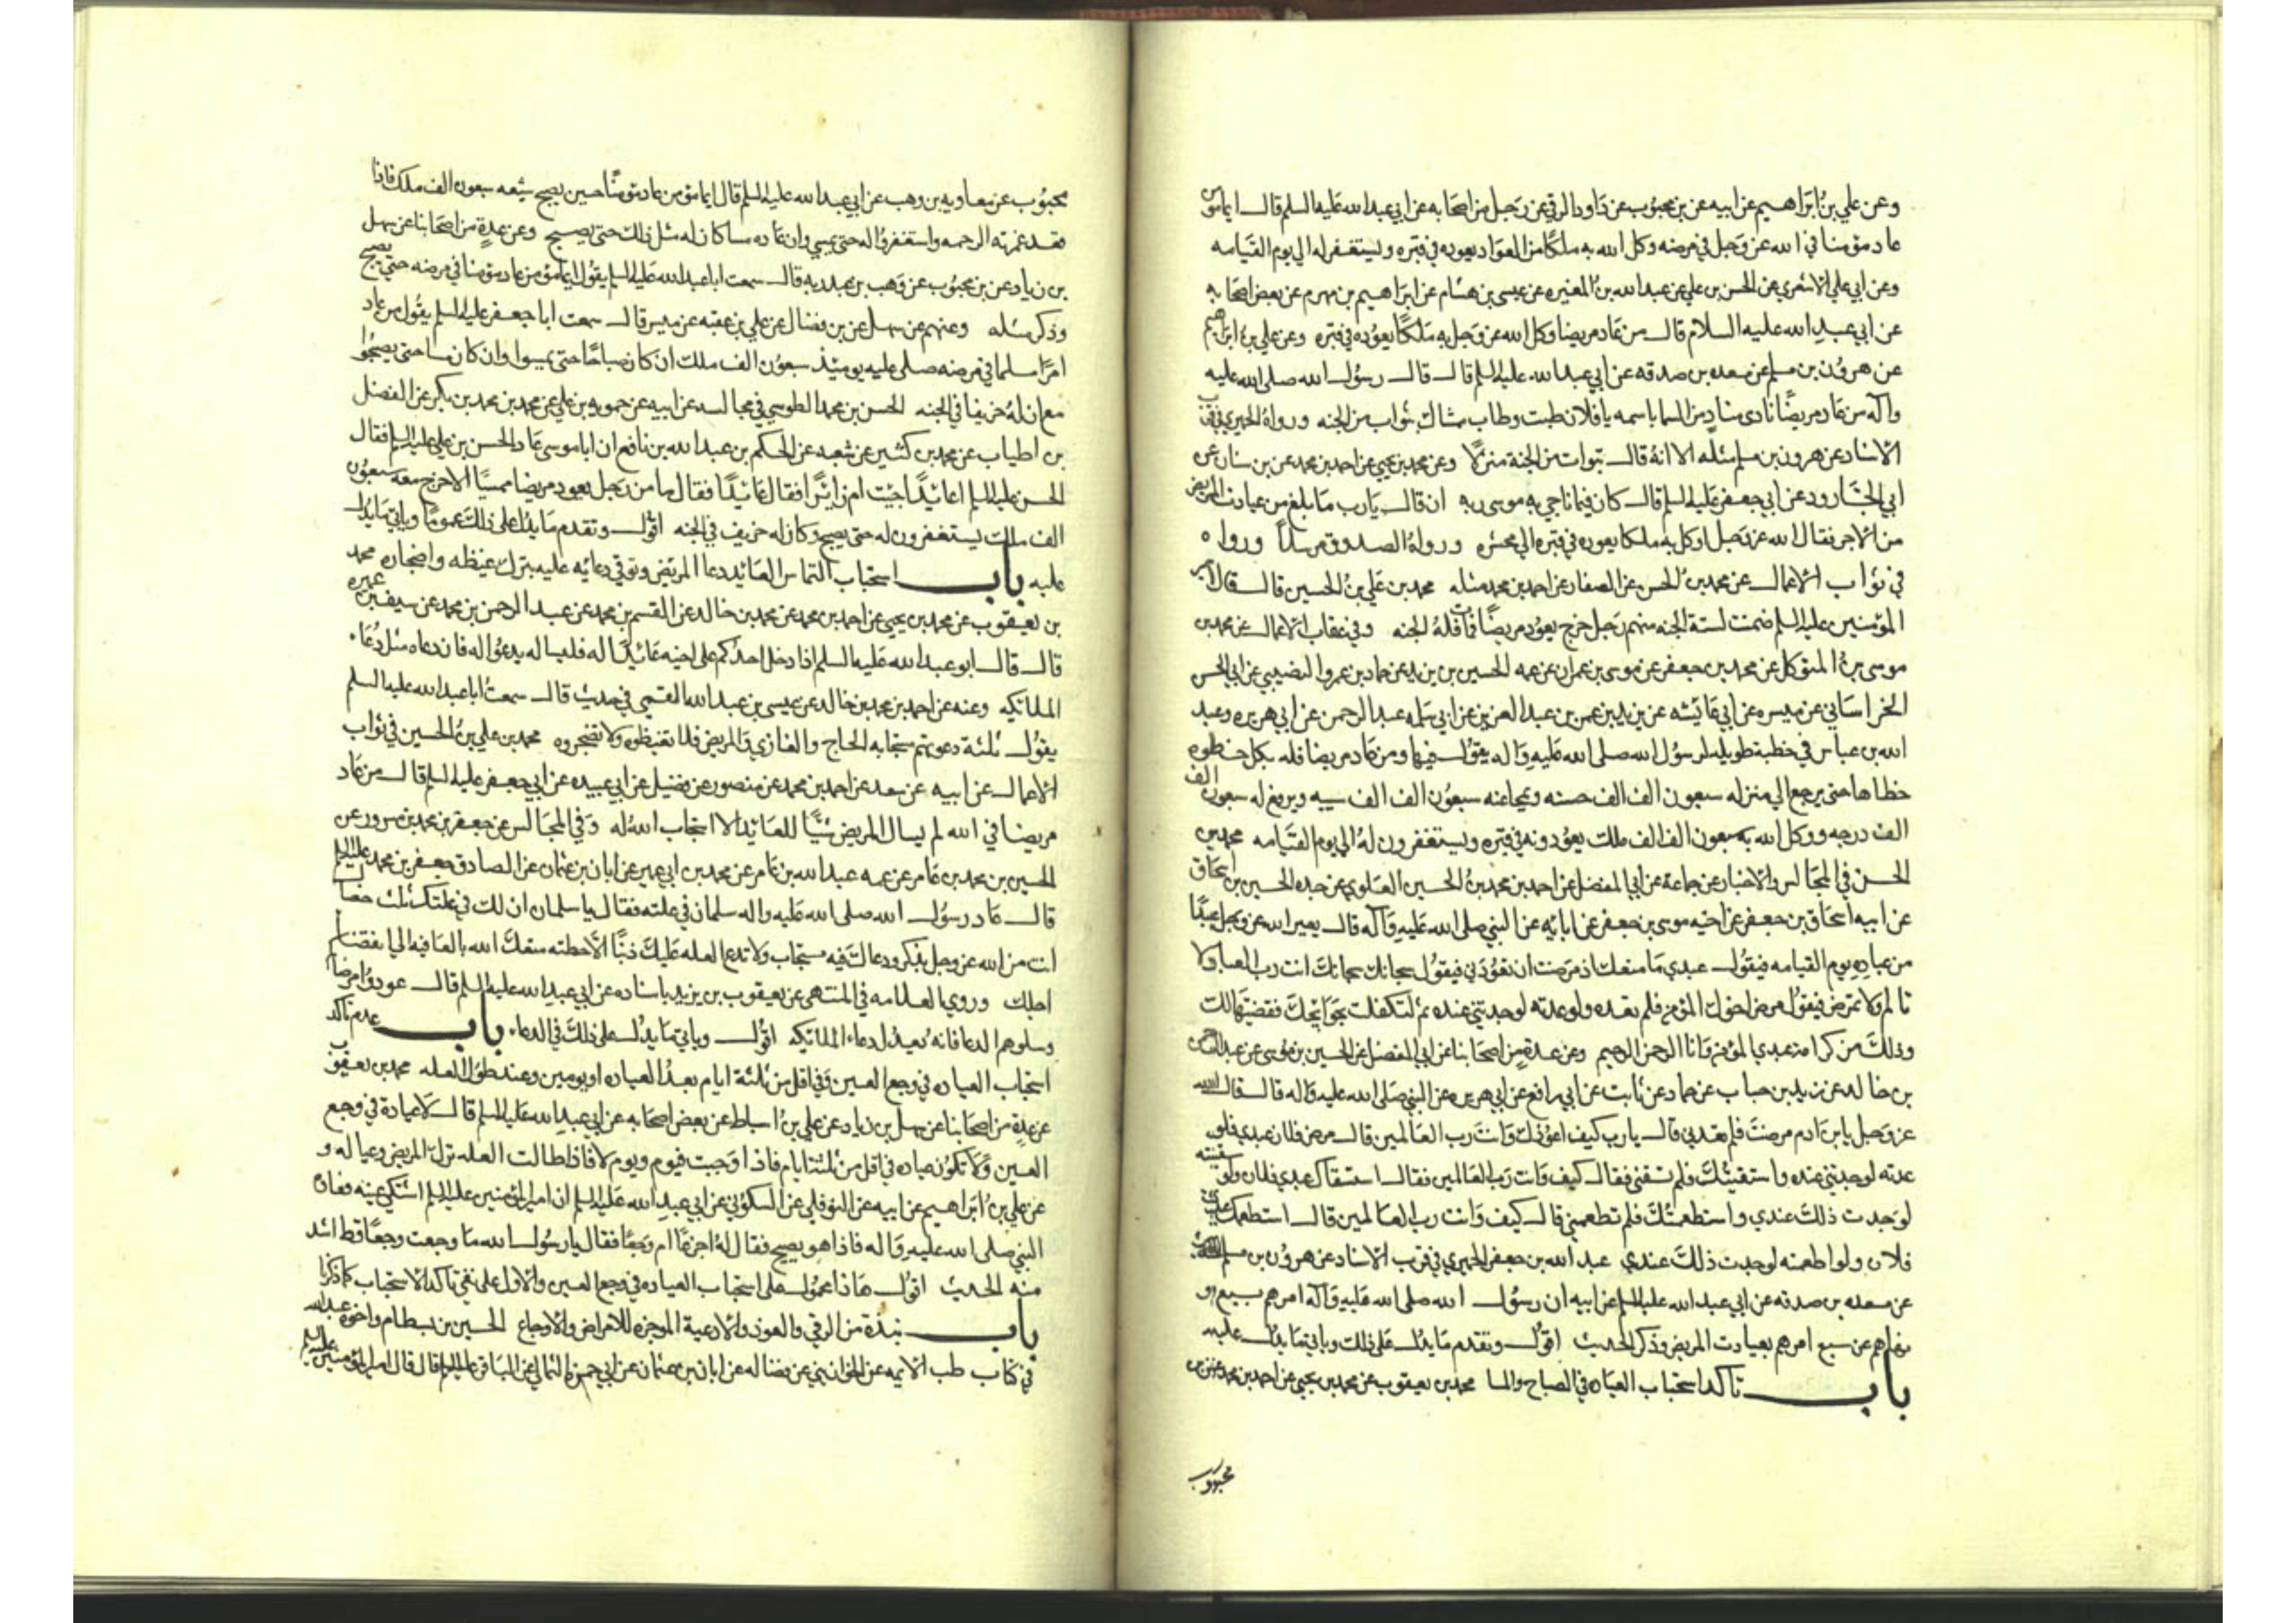 وعن علي بن ابراهيم عن ابيه عن بن محبوب عن داود الرقي عن رجل من اصحابه عن ابي عبد الله عليه السلم قال ايما مؤمن
عاد مؤمنا في الله عز وجل في مرضه وكل الله به ملكا من العواد يعوده في قبره ويستغفر له الي يوم القيامه
وعن ابي علي الاشعري عن الحسن بن علي عن عبد الله بن المغيره عن عيسى بن هشام عن ابراهيم بن مهزم عن بعض اصحابه
عن ابي عبد الله عليه السلام قال من عاد مريضا وكل الله عز وجل به ملكا يعوده في قبره وعن علي بن ابراهيم
عن هرون بن مسلم عن مسعده بن صدقه عن ابي عبد الله عليه السلم قال قال رسول الله صلى الله عليه
واله من عاد مريضا نادى مناد من السما باسمه يا فلان طبت وطاب ممشاك بثواب من الجنه ورواه الحميري في قرب
الاسناد عن هرون بن مسلم مثله الا انه قال تبوات من الجنة منزلا وعن محمد بن يحيى عن احمد بن محمد عن بن سنان عن
ابي الجارود عن ابي جعفر عليه السلم قال كان فيما ناجي به موسى ربه ان قال يا رب ما بلغ من عيادت المريض
من الاجر فقال الله عز وجل اوكل به ملكا يعوده في قبره الي محشره ورواه الصدوق مرسلا ورواه
في ثواب الاعمال عن محمد بن الحسن عن الصفار عن احمد بن محمد مثله محمد بن علي بن الحسين قال قال امير
المؤمنين عليه السلم ضمنت لستة الجنه منهم رجل خرج يعود مريضا فمات فله الجنه وفي عقاب الاعمال عن محمد بن
موسى بن المتوكل عن محمد بن جعفر عن موسى بن عمران عن عمه الحسين بن يزيد عن حماد بن عمرو النصيبي عن ابي الحسن
الخراساني عن ميسره عن ابي عايشه عن يزيد بن عمر بن عبد العزيز عن ابي سلمه عبد الرحمن عن ابي هريره وعبد
الله بن عباس في خطبة طويله لرسول الله صلى الله عليه واله يقول فيها ومن عاد مريضا فله بكل خطوه
خطاها حتى يرجع الي منزله سبعون الف الف حسنه ويمحا عنه سبعون الف الف سيه ويرفع له سبعون الف
الف درجه ووكل الله به سبعون الف الف ملك يعودونه في قبره ويستغفرون له الي يوم القيامه محمد بن
الحسن في المجالس والاخبار عن جماعة عن ابي المفضل عن احمد بن محمد بن الحسين العلوي عن جده الحسين بن اسحاق
عن ابيه اسحاق بن جعفر عن اخيه موسى بن جعفر عن ابائه عن النبي صلى الله عليه واله قال يعير الله عز وجل عبدا
من عباده يوم القيامه فيقول عبدي ما منعك اذ مرضت ان تعودني فيقول سبحانك سبحانك انت رب العباد لا
تالم ولا تمرض فيقول مرض اخوك المؤمن فلم تعده ولو عدته لوجدتني عنده ثم لتكفلت بحوايجك فقضيتها لك
وذلك من كرامة عبدي المؤمن وانا الرحمن الرحيم وعن عدة من اصحابنا عن ابي المفضل عن الحسين بن موسى عن عبد الرحمن
بن خالد عن زيد بن حباب عن حماد عن ثابت عن ابي رافع عن ابي هريره عن النبي صلى الله عليه واله قال قال الله
عز وجل يا بن ادم مرضت فلم تعدني قال يا رب كيف اعودك وانت رب العالمين قال مرض فلان عبدي فلو
عدته لوجدتني عنده واستقيتك فلم تسقني فقال كيف وانت رب العالمين فقال استسقاك عبدي فلان ولو سقيته
لوجدت ذلك عندي واستطعمتك فلم تطعمني قال كيف وانت رب العالمين قال استطعمك عبدي
فلان ولو اطعمته لوجدت ذلك عندي عبد الله بن جعفر الحميري في قرب الاسناد عن هرون بن مسلم
عن مسعده بن صدقه عن ابي عبد الله عليه السلم عن ابيه ان رسول الله صلى الله عليه واله امرهم بسبع و
نهاهم عن سبع امرهم بعيادت المريض وذكر الحديث اقول وتقدم ما يدل على ذلك وياتي ما يدل عليه
باب تاكد استحباب العياده في الصباح والمسا محمد بن يعقوب عن محمد بن يحيى عن احمد بن محمد عن بن
محبوب
محبوب عن معاويه بن وهب عن ابي عبد الله عليه السلم قال ايما مؤمن عاد مؤمنا حين يصبح شيعه سبعون الف ملك فاذا
قعد غمرته الرحمه واستغفروا له حتى يمسي وان عاده مسا كان له مثل ذلك حتى يصبح وعن عدة من اصحابنا عن سهل
بن زياد عن بن محبوب عن وهب بن عبد ربه قال سمعت ابا عبد الله عليه السلم يقول ايما مؤمن عاد مؤمنا في مرضه حتى يصبح
وذكر مثله وعنهم عن سهل عن بن فضال عن علي بن عقبه عن ميسر قال سمعت ابا جعفر عليه السلم يقول من عاد
امرا مسلما في مرضه صلى عليه يومئذ سبعون الف ملك ان كان صباحا حتى يمسوا وان كان مسا حتى يصبحوا
مع ان له خريفا في الجنه الحسن بن محمد الطوسي في مجالسه عن ابيه عن حمويه بن علي عن محمد بن محمد بن بكر عن الفضل
بن عن محمد بن كثير عن شعبه عن الحكم بن عبد الله بن نافع ان ابا موسى عاد الحسن بن علي عليه السلم فقال
الحسن عليه السلم اعائدا جيت ام زائرا فقال عائدا فقال ما من رجل يعود مريضا ممسيا الا خرج معه سبعون
الف ملك يستغفرون له حتى يصبح وكان له خريف في الجنه اقول وتقدم ما يدل على ذلك عموما وياتي ما يدل
عليه باب استحباب التماس العائد دعا المريض وتوقي دعائه عليه بترك غيظه واضجاره محمد
بن يعقوب عن محمد بن يحيى عن احمد بن محمد عن محمد بن خالد عن القسم بن محمد عن عبد الرحمن بن محمد عن سيف بن عميره
قال قال ابو عبد الله عليه السلم اذا دخل احدكم على اخيه عائدا له فليساله يدعو له فان دعاه مثل دعاء
الملائكه وعنه عن احمد بن محمد بن خالد عن عيسى بن عبد الله القمي في حديث قال سمعت ابا عبد الله عليه السلم
يقول ثلثة دعوتهم مستجابه الحاج والغازي والمريض فلا تغيظوه ولا تضجروه محمد بن علي بن الحسين في ثواب
الاعمال عن ابيه عن سعد عن احمد بن محمد عن منصور عن فضيل عن ابي عبيده عن ابي جعفر عليه السلم قال من عاد
مريضا في الله لم يسال المريض شيئا للعائد الا استجاب الله له وفي المجالس عن جعفر بن محمد بن مسرور عن
الحسين بن محمد بن عامر عن عمه عبد الله بن عامر عن محمد بن ابي عمير عن ابان بن عثمان عن الصادق جعفر بن محمد عليه السلم
قال عاد رسول الله صلى الله عليه واله سلمان في علته فقال يا سلمان ان لك في علتك ثلث خصال
انت من الله عز وجل بذكر ودعاك فيه مستجاب ولا تدع العله عليك ذنبا الا حطته متعك الله بالعافيه الي انقضا
اجلك وروي العلامه في المنتهى عن يعقوب بن يزيد باسناده عن ابي عبد الله عليه السلم قال عودوا مرضاكم
وسلوهم الدعا فانه يعدل دعاء الملائكه اقول وياتي ما يدل على ذلك في الدعاء باب عدم تاكد
استحباب العياده في وجع العين وفي اقل من ثلثة ايام بعد العياده او يومين وعند طول العله محمد بن يعقوب
عن عدة من اصحابنا عن سهل بن زياد عن علي بن اسباط عن بعض اصحابه عن ابي عبد الله عليه السلم قال لا عيادة في وجع
العين ولا تكون عياده في اقل من ثلثة ايام فاذا وجبت فيوم ويوم لا فاذا طالت العله ترك المريض وعياله و
عن علي بن ابراهيم عن ابيه عن النوفلي عن السكوني عن ابي عبد الله عليه السلم ان امير المؤمنين عليه السلم اشتكى عينه فعاده
النبي صلى الله عليه واله فاذا هو يصيح فقال له اجزعا ام وجعا فقال يا رسول الله ما وجعت وجعا قط اشد
منه الحديث اقول هذا محمول على استحباب العياده في وجع العين والاول على نفي تاكد الاستحباب كما ذكرنا
باب نبذة من الرقي والعوذ والادعية الموجزه للامراض والاوجاع الحسين بن بسطام واخوه عبد الله
في كتاب طب الايمه عن الخواتيمي عن فضاله عن ابان بن عثمان عن ابي حمزه الثمالي عن الباقر عليه السلم قال قال امير المؤمنين عليه السلم